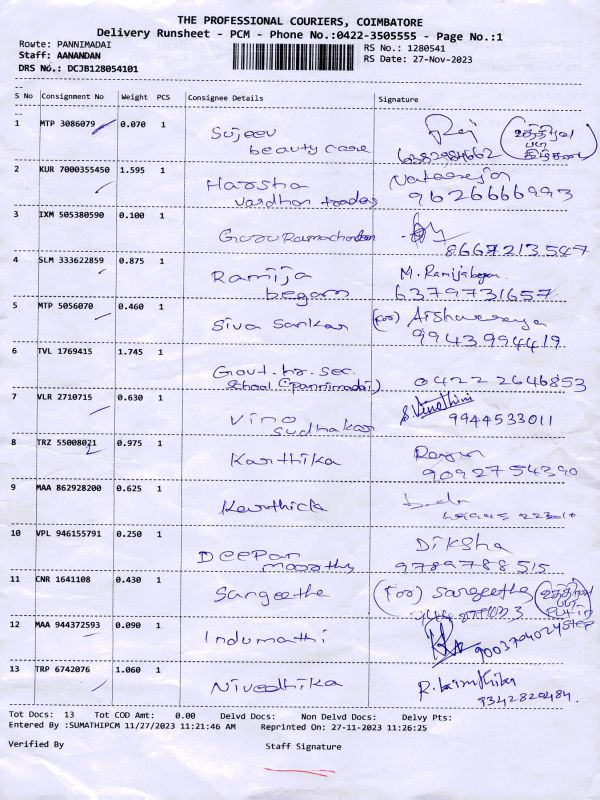 THE PROFESSIONAL COURIERS, COIMBATORE
Delivery Runsheet - PCM - Phone No.:0422-3505555 - Page No.:1
Route: PANNIMADAI
RS No.: 1280541
Staff: AANANDAN
RS Date: 27-Nov-2023
DRS No.: DCJB128054101
S No Consignment No Weight PCS Consignee Details Signature
1 MTP 3086079 0.070 1 Sujeev Raj
beauty care 6382984662
2 KUR 7000355450 1.595 1 Harsha Natarajan
vardhan traders 9626666993
3 IXM 505380590 0.100 1 Guru Ramachandran
8667213547
4 SLM 333622859 0.875 1 Ramija M. Ramijabegam
begam 6379731657
5 MTP 5056070 0.460 1 Siva Sankar (for) Aishwarya
9943994419
6 TVL 1769415 1.745 1 Govt. hr. sec.
School (pannimadai) 0422 2646853
7 VLR 2710715 0.630 1 Vino S. Vinothini
Sudhakar 9944533011
8 TRZ 55008021 0.975 1 Karthika
9092754390
9 MAA 862928200 0.625 1 Karthick
10 VPL 946155791 0.250 1 Deepan Diksha
moorthy 9789788515
11 CNR 1641108 0.430 1 Sangeetha (for) Sangeetha
12 MAA 944372593 0.090 1 Indumathi
9003794024 step
13 TRP 6742076 1.060 1 Nivedhika
9342820484.
Tot Docs: 13 Tot COD Amt: 0.00 Delvd Docs: Non Delvd Docs: Delvy Pts:
Entered By :SUMATHIPCM 11/27/2023 11:21:46 AM Reprinted On: 27-11-2023 11:26:25
Verified By Staff Signature